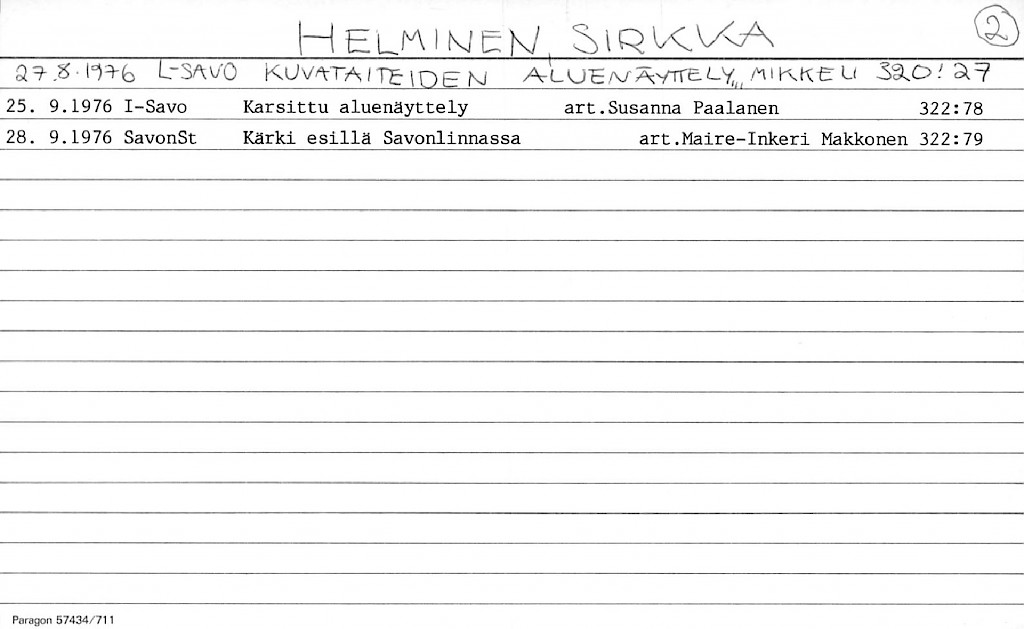 HELMINEN, SIRKKA 2
27.8.1976 L-SAVO KUVATAITEIDEN ALUENÄYTTELY,,, MIKKELI 320:27
25. 9.1976 I-Savo Karsittu aluenäyttely art.Susanna Paalanen 322:78
28. 9.1976 SavonSt Kärki esillä Savonlinnassa art.Maire-Inkeri Makkonen 322:79
Paragon 57434/711